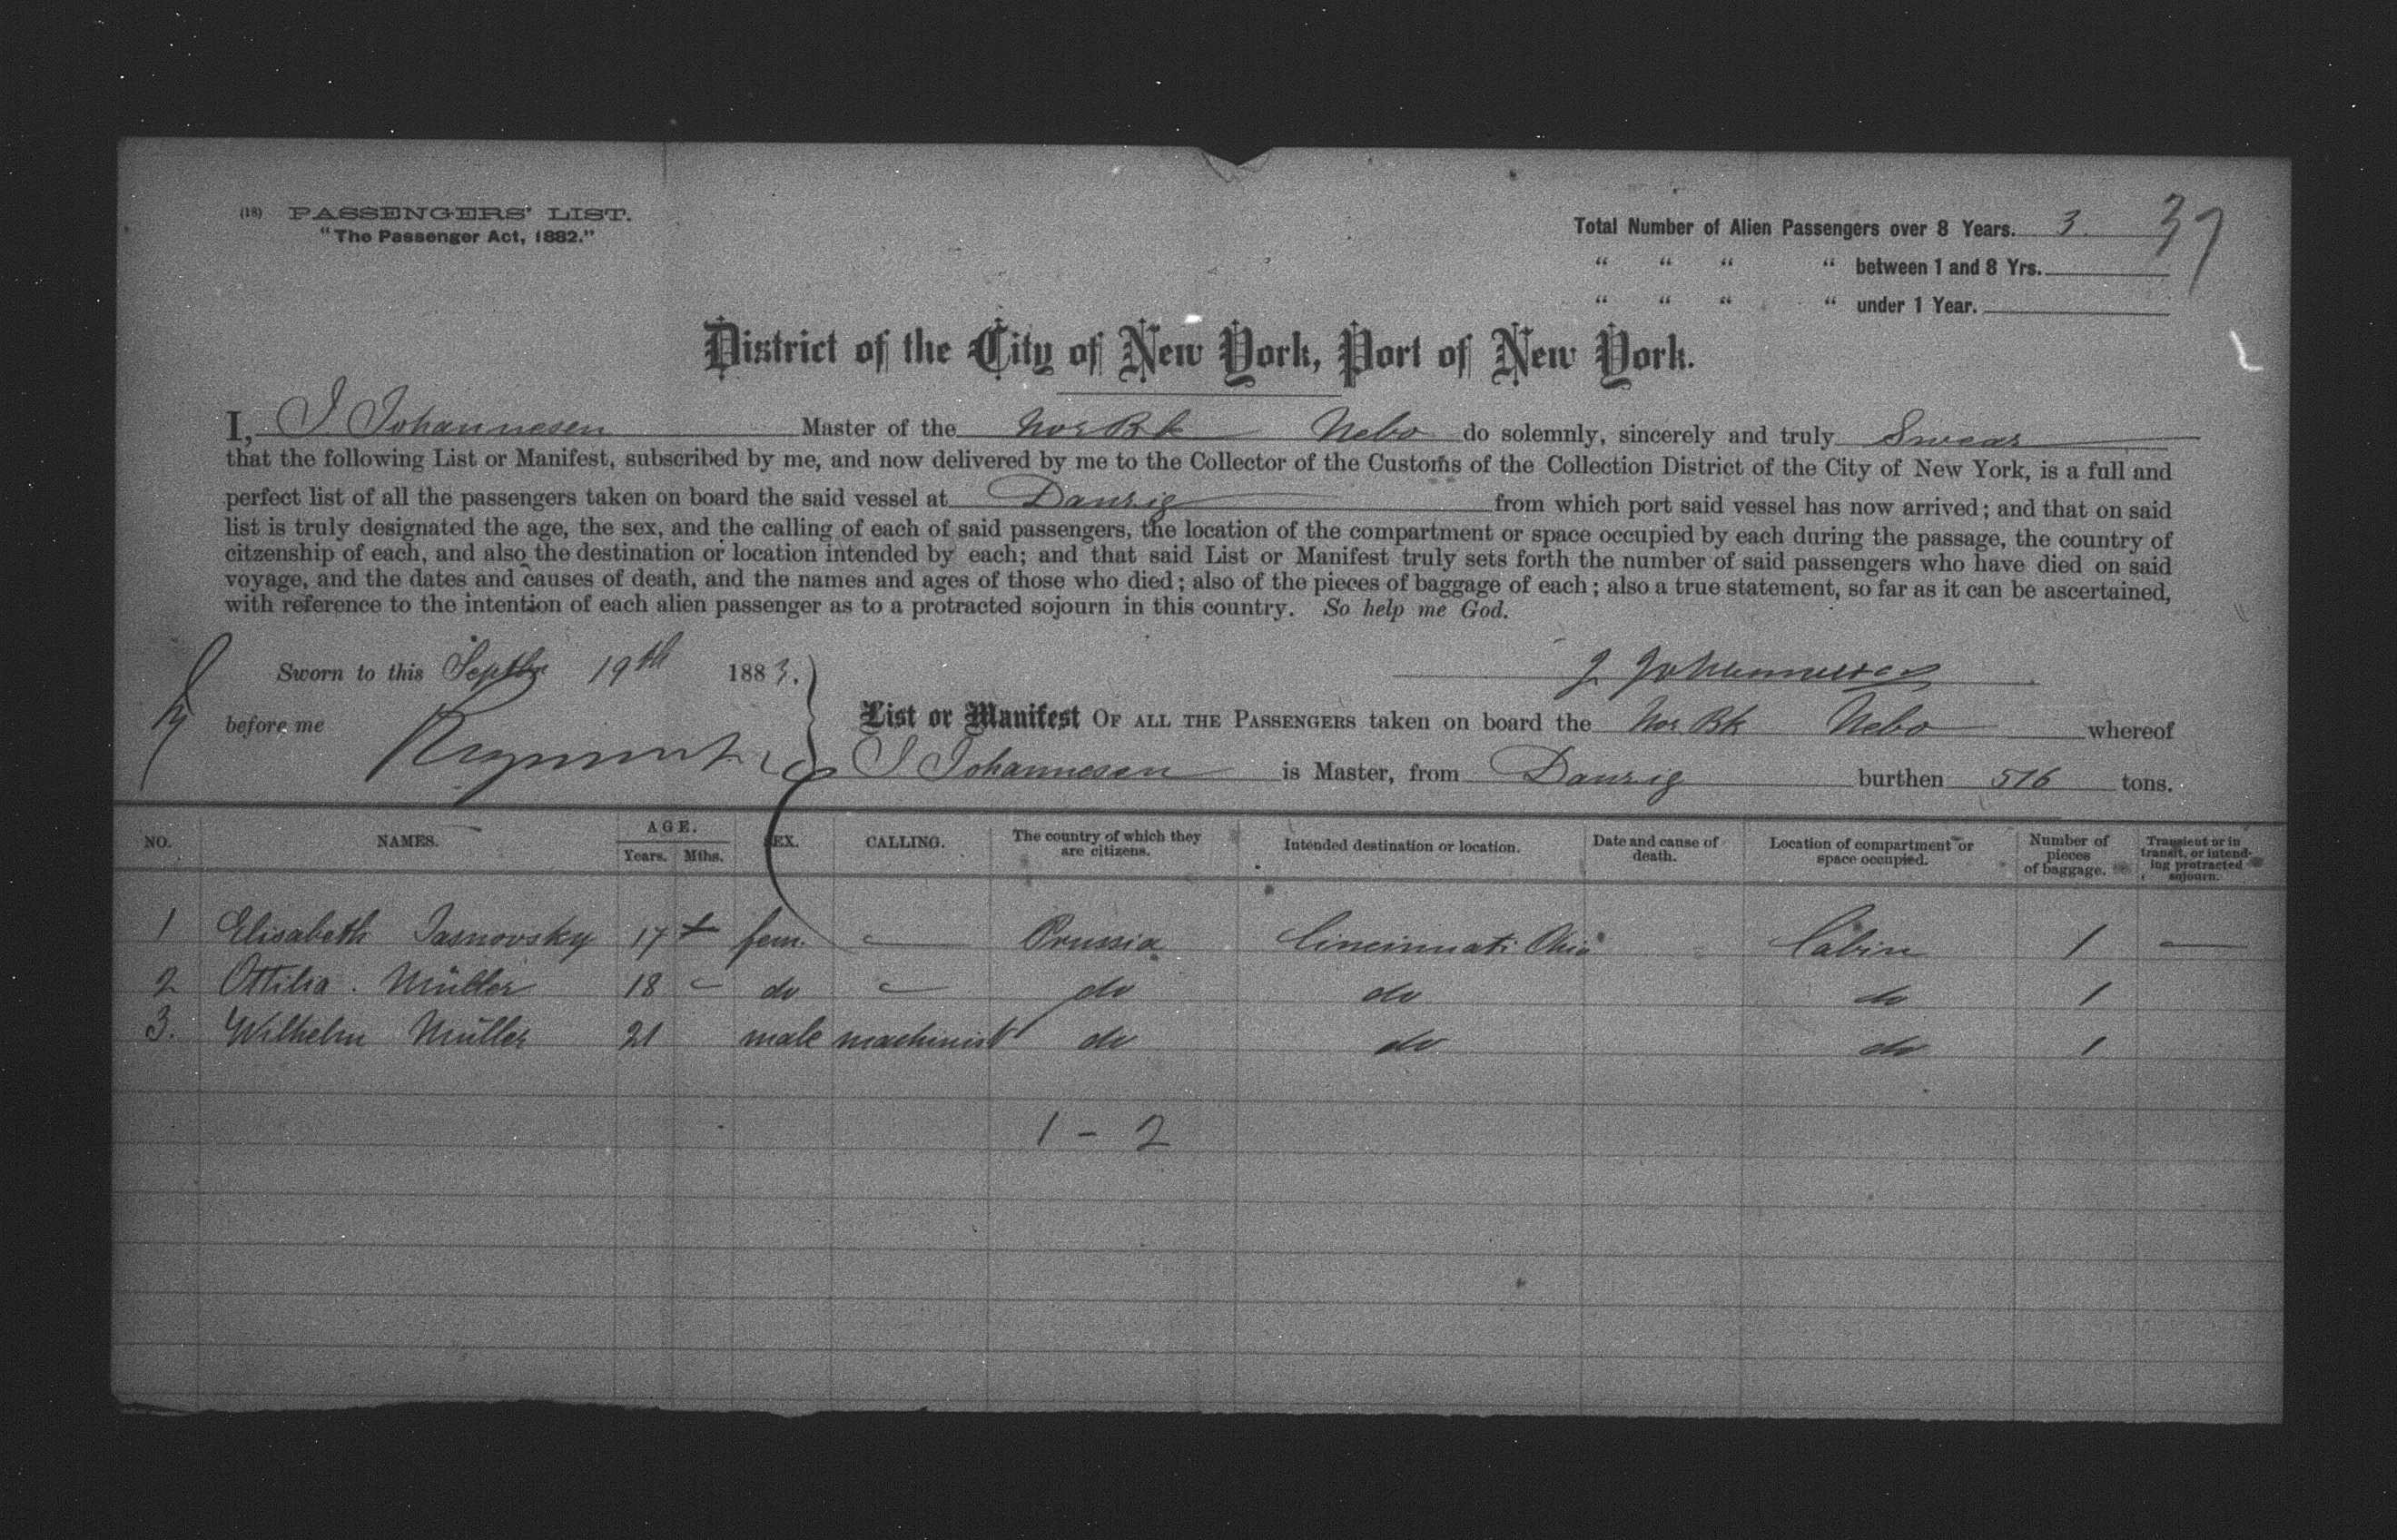 (18) PASSENGERS' LIST.
"The Passenger Act, 1882."
Total Number of Alien Passengers over 8 Years. 3. 37
" " " " between 1 and 8 Yrs.
" " " " under 1 Year.
District of the City of New York, Port of New York.
I, J Johannesen Master of the Nor Bk Nebo do solemnly, sincerely and truly Swear
that the following List or Manifest, subscribed by me, and now delivered by me to the Collector of the Customs of the Collection District of the City of New York, is a full and
perfect list of all the passengers taken on board the said vessel at Danzig from which port said vessel has now arrived; and that on said
list is truly designated the age, the sex, and the calling of each of said passengers, the location of the compartment or space occupied by each during the passage, the country of
citzenship of each, and also the destination or location intended by each; and that said List or Manifest truly sets forth the number of said passengers who have died on said
voyage, and the dates and causes of death, and the names and ages of those who died; also of the pieces of baggage of each; also a true statement, so far as it can be ascertained,
with reference to the intention of each alien passenger as to a protracted sojourn in this country. So help me God.
Sworn to this Septbr 19th 1883. J Johannesen
before me
List or Manifest OF ALL THE PASSENGERS taken on board the Nor Bk Nebo whereof
J Johannesen is Master, from Danzig burthen 516 tons.
NO. NAMES. AGE. Years. Mths. SEX. CALLING. The country of which they are citizens. Intended destination or location. Date and cause of death. Location of compartment or space occupied. Number of pieces of baggage. Transient or in transit, or intending protracted sojourn.
1 Elisabeth Jasnovsky 17 fem. — Prussia Cincinnati Ohio Cabin 1 —
2 Ottilia. Müller 18 – do – do do do 1
3. Wilhelm Müller 21 male machinist do do do 1
1 - 2